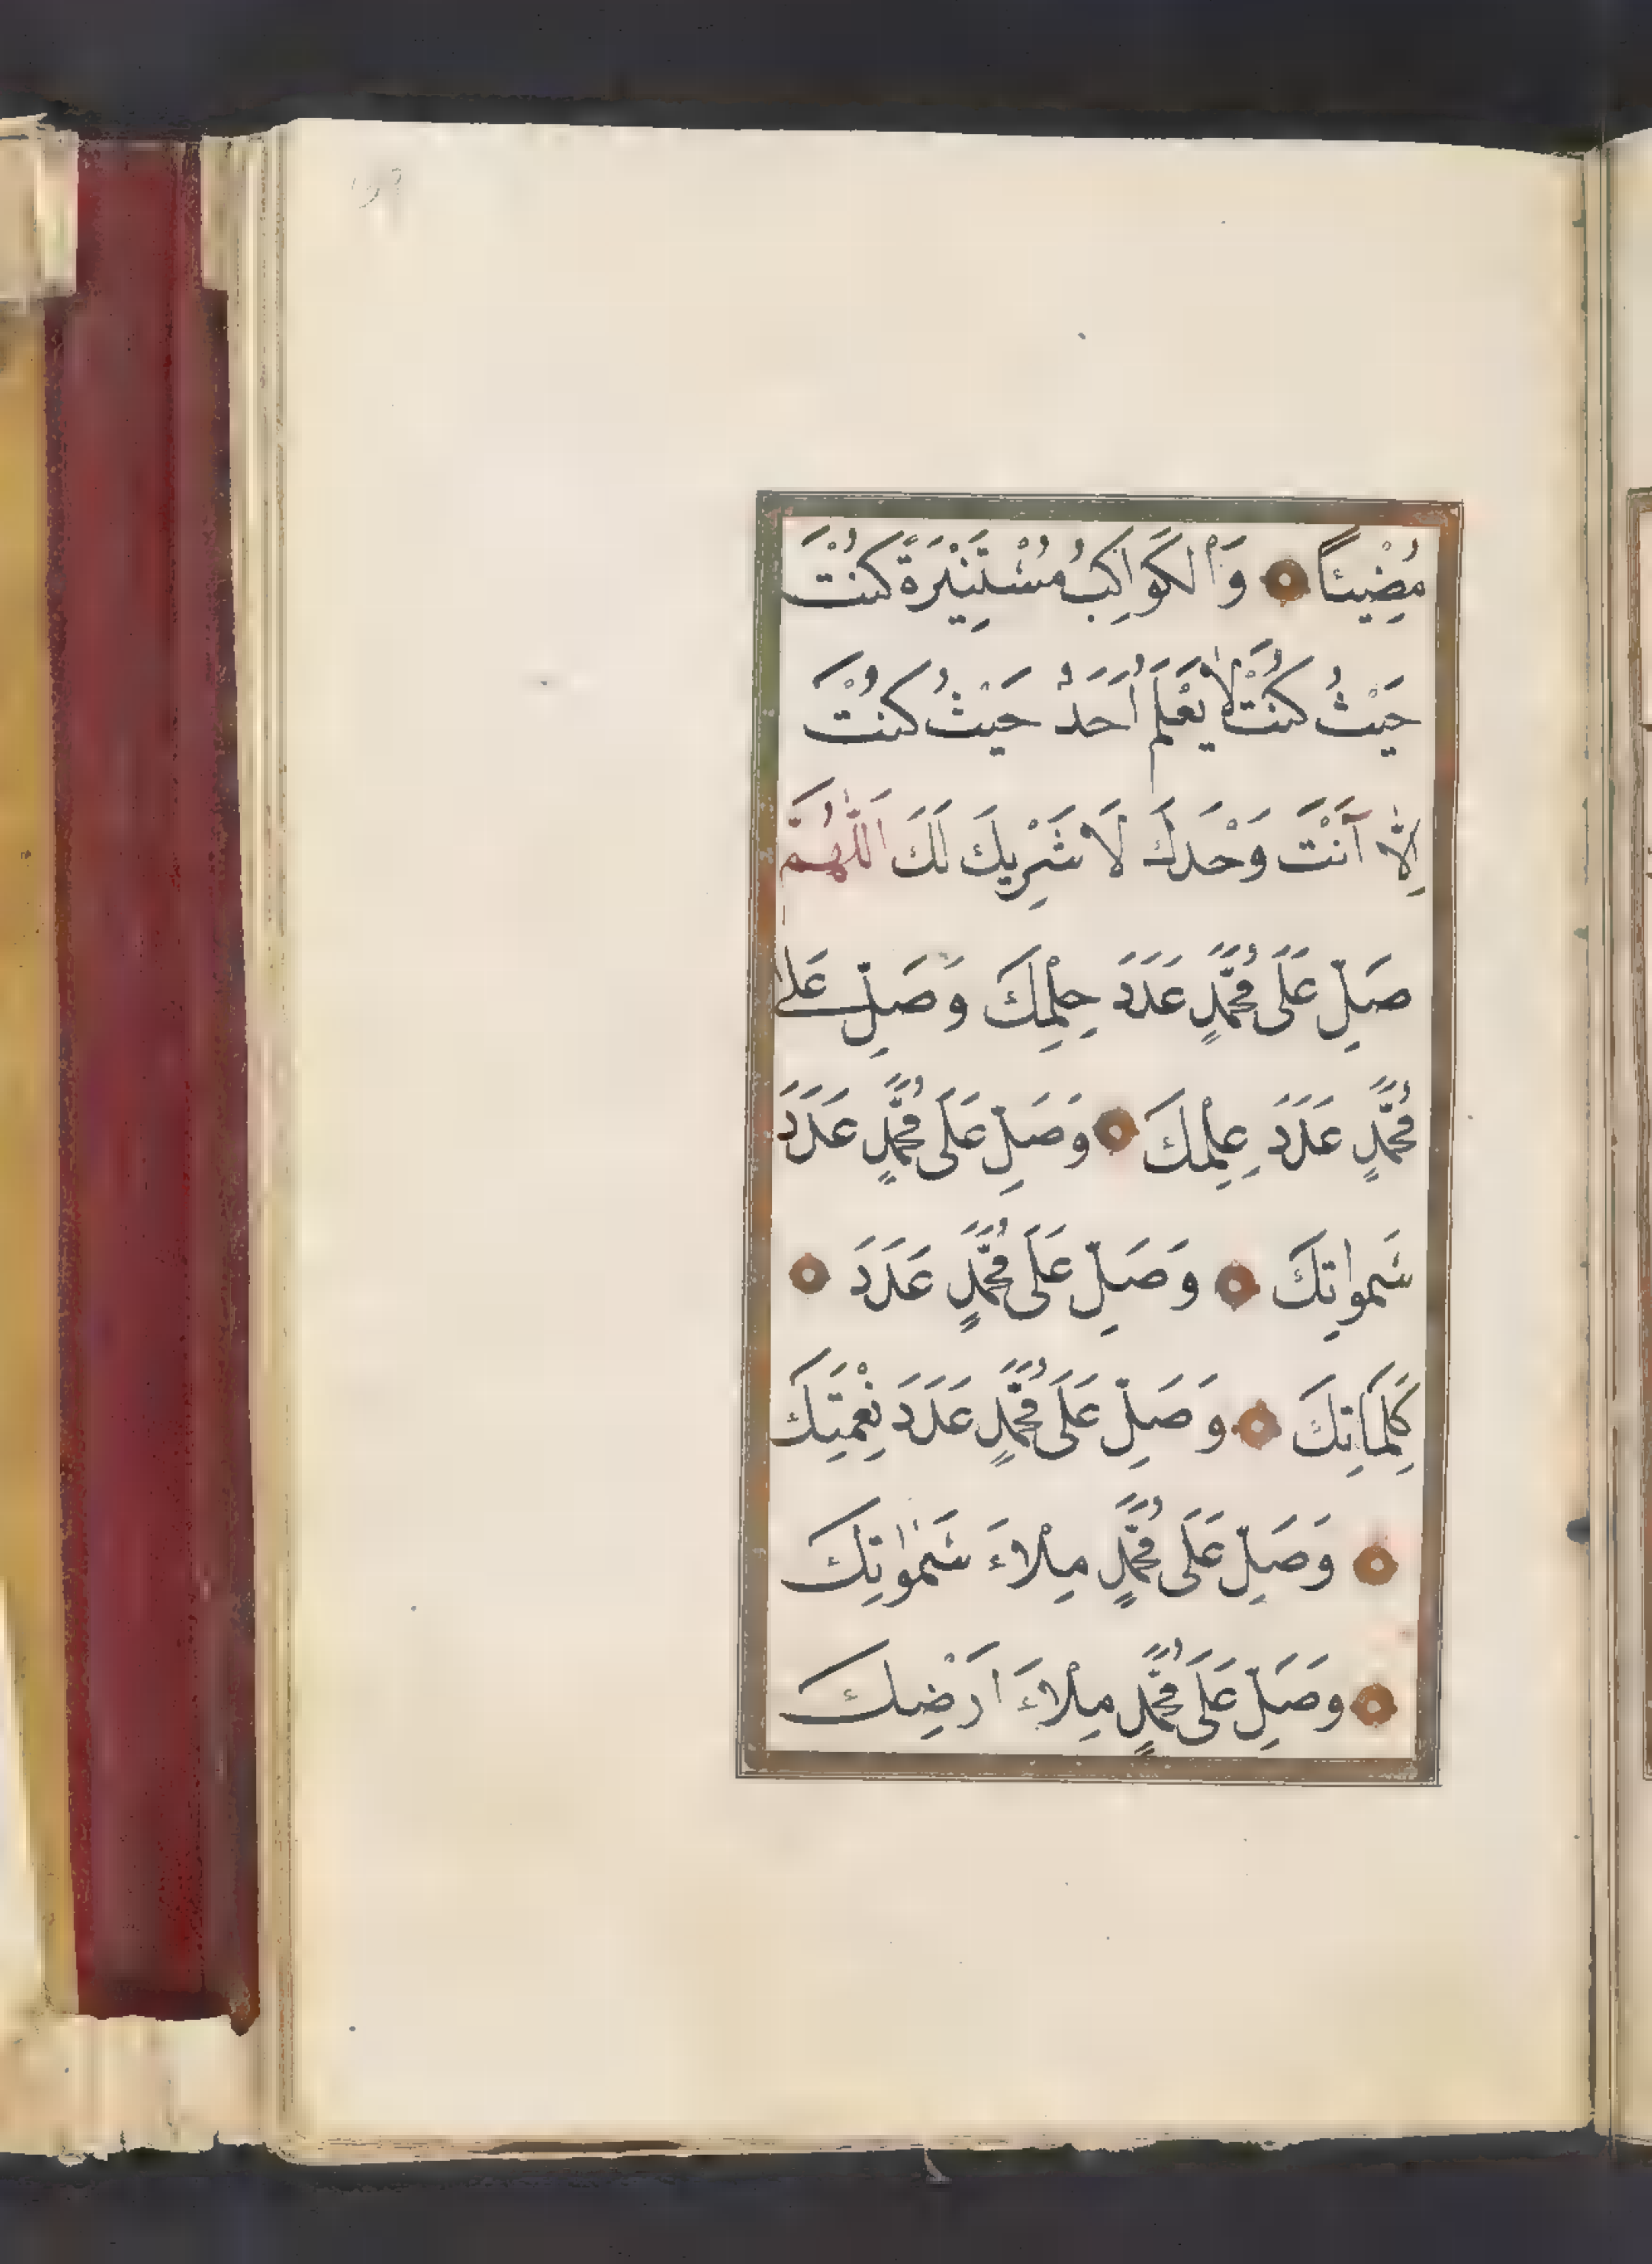 مُضِيْئاً وَاْلكَوَاكِبُ مُسْتَنِيْرَةً كُنْتَ
حَيْثُ كُنْتَ لَا يَعْلَمُ أَحَدٌ حَيْثُ كُنْتَ
اِلَّا اَنْتَ وَحْدَكَ لَا شَرِيْكَ لَكَ اَللّٰهُمَّ
صَلِّ عَلَى مُحَمَّدٍ عَدَدَ حِلْمِكَ وَصَلِّ عَلَى
مُحَمَّدٍ عَدَدَ عِلْمِكَ وَصَلِّ عَلَى مُحَمَّدٍ عَدَدَ
سَمٰوَاتِكَ وَصَلِّ عَلَى مُحَمَّدٍ عَدَدَ
كَلِمَاتِكَ وَصَلِّ عَلَى مُحَمَّدٍ عَدَدَ نِعْمَتِكَ
وَصَلِّ عَلَى مُحَمَّدٍ مِلْاءَ سَمٰوَاتِكَ
وَصَلِّ عَلَى مُحَمَّدٍ مِلْاءَ اَرْضِكَ